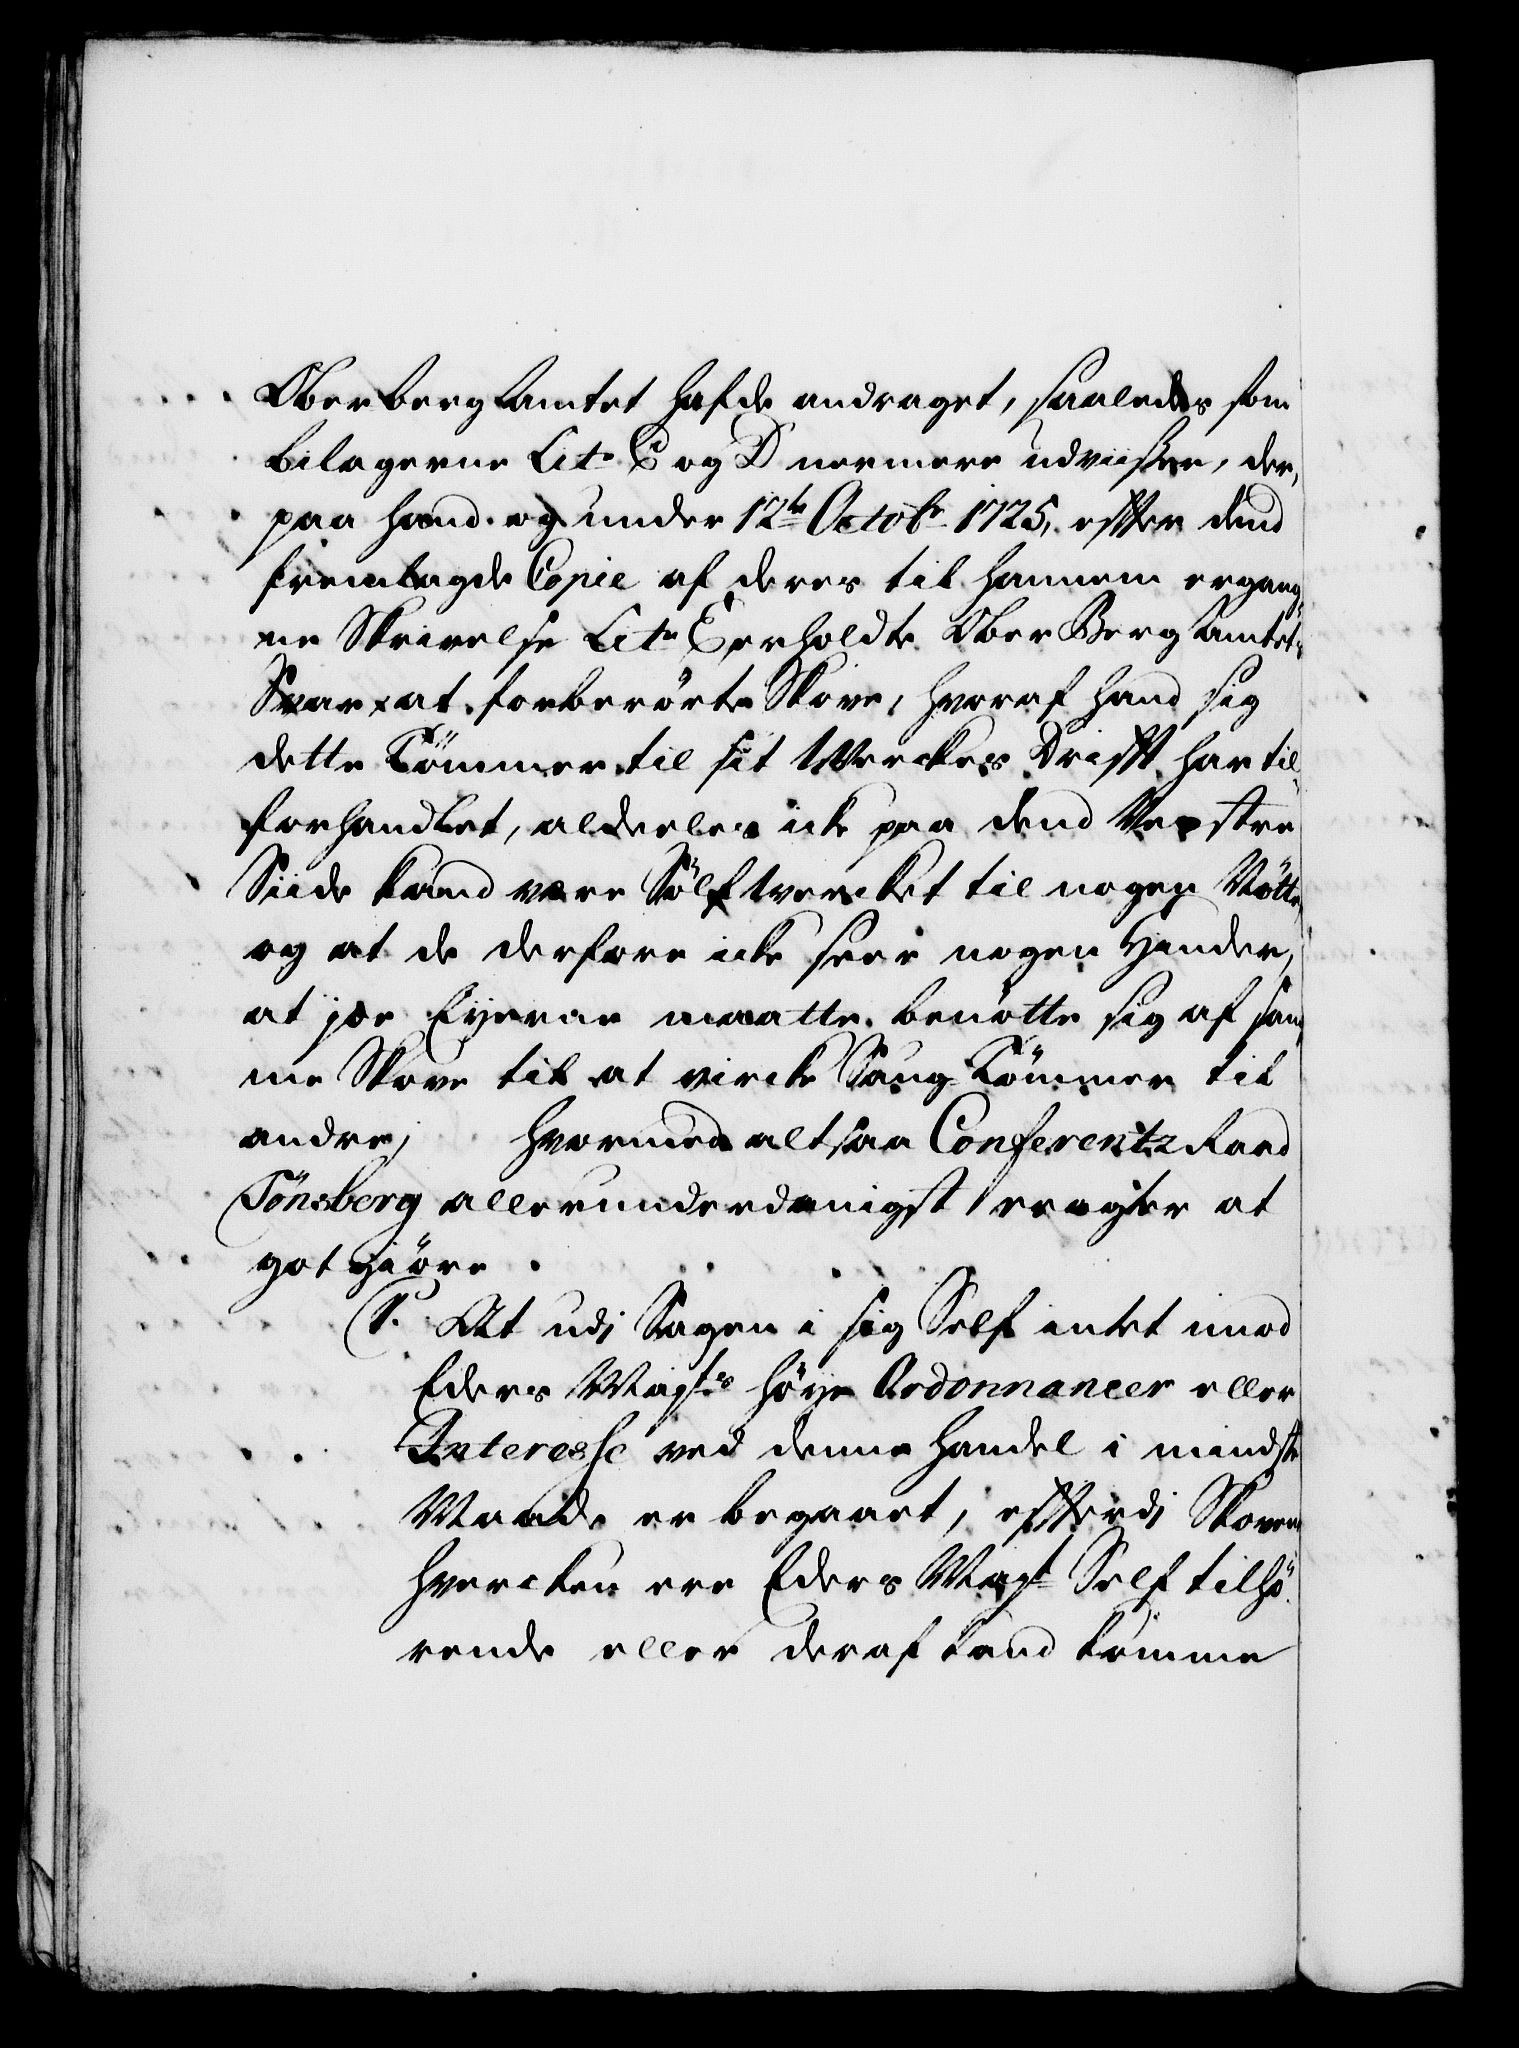 Oberbergamtet hafde andraget, saaledes som
bilagerne Lit. C og D nermere udviisser, der,
paa hand og under 12te Octobr 1725, effter dend
fremlagde Copie af deres til hannem ergang¬
ne Skrivelse Lit. E erholdte Ober Berg Amtets
Svar at forberörte Skove, hvoraf hand sig
dette Tömmer til sit Werckes Drifft har til¬
forhandlet, alderles icke paa dend Vestre
Siide kand være Sölfwercket til nogen Nötte,
og at de derfore icke seer nogen Hinder,
at jo Eyerne maatte benötte sig af sam¬
me Skove til at vircke Saug-Tömmer til
andre, hvormed altsaa Conferentz Raad
Tönsberg allerunderdanigst eragter at
got giöre
1. At udj Sagen i sig Self intet imod
Eders Maysts höye Ordonnancer eller
Interesse ved denne Handel i mindste
Maade er begaaet, efftersdj Skovene
hvercken ere Eders Mayst Self tilhö¬
rende eller deraf kand komme